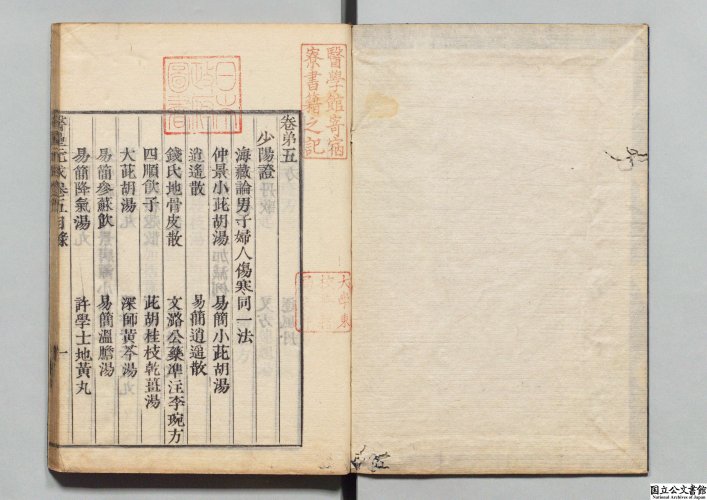 卷第五
少陽證
海藏論男子婦人傷寒同一法
仲景小茈胡湯 易簡小茈胡湯
逍遙散 易簡逍遥散
錢氏地骨皮散 文潞公藥準注李琬方
四順飲子 茈胡桂枝乾薑湯
大茈胡湯 深師黃芩湯
易簡參蘇飲 易簡溫膽湯
易簡降氣湯 許學士地黃丸
卷五目錄 一
醫學館寄宿
寮書籍之記
日本
政府
圖書
大學東
国立公文書館
National Archives of Japan